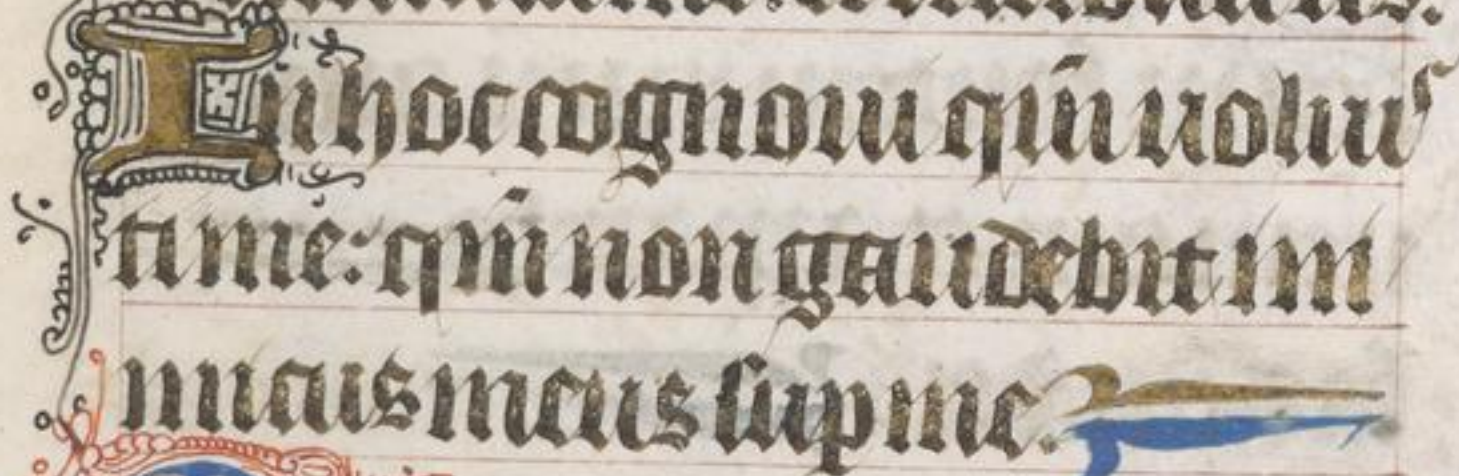 In hoc cognoui qm̄ uoluis
ti me: qm̄ non gaudebit ini
micus meus sup me.